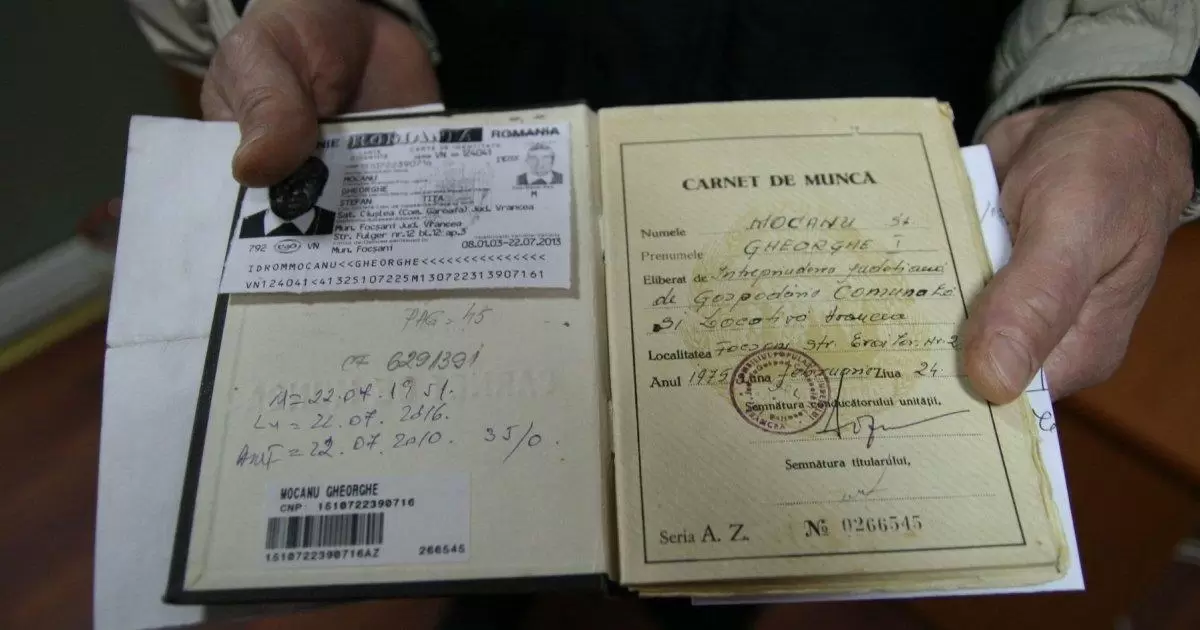 ROMANIA ROMANIA
CARTE DE IDENTITATE
VN 124041
MOCANU
GHEORGHE
STEFAN TITA
M
Sat. Ciuslea (Com. Garoafa) Jud. Vrancea
Mun. Focşani Jud. Vrancea
Str. Fulger nr.12 bl.12 ap.3
Mun. Focşani 08.01.03-22.07.2013
792 VN
IDROMMOCANU<<GHEORGHE<<<<<<<<<<<<<<<
VN124041<41325107225M130722313907161
PAG = 45
CF 6291391
22.07.1951.
22.07.2016.
22.07.2010. 35/0.
MOCANU GHEORGHE
CNP: 1510722390716
1510722390716AZ 266545
CARNET DE MUNCĂ
Numele MOCANU St.
Prenumele GHEORGHE I
Eliberat de Intreprinderea Judeţeană
de Gospodărie Comunală
şi Locativă Vrancea
Localitatea Focşani Str. Eroilor Nr. 2
Anul 1975 Luna februarie Ziua 24.
Semnătura conducătorului unităţii,
Semnătura titularului,
Seria A. Z. № 0266545